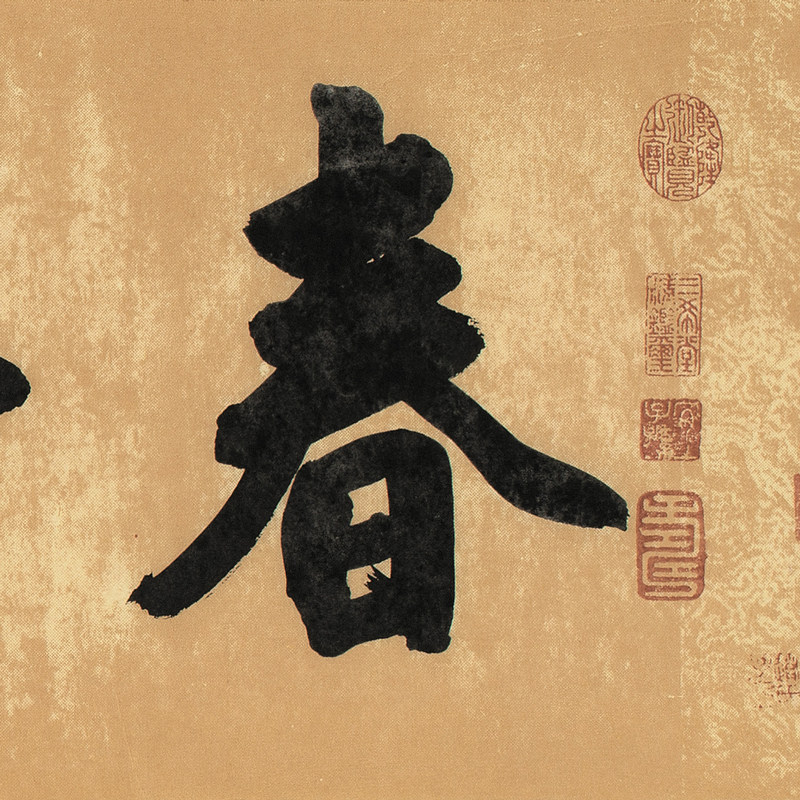 春
乾隆御覽之寶
三希堂精鑑璽
宜子孫